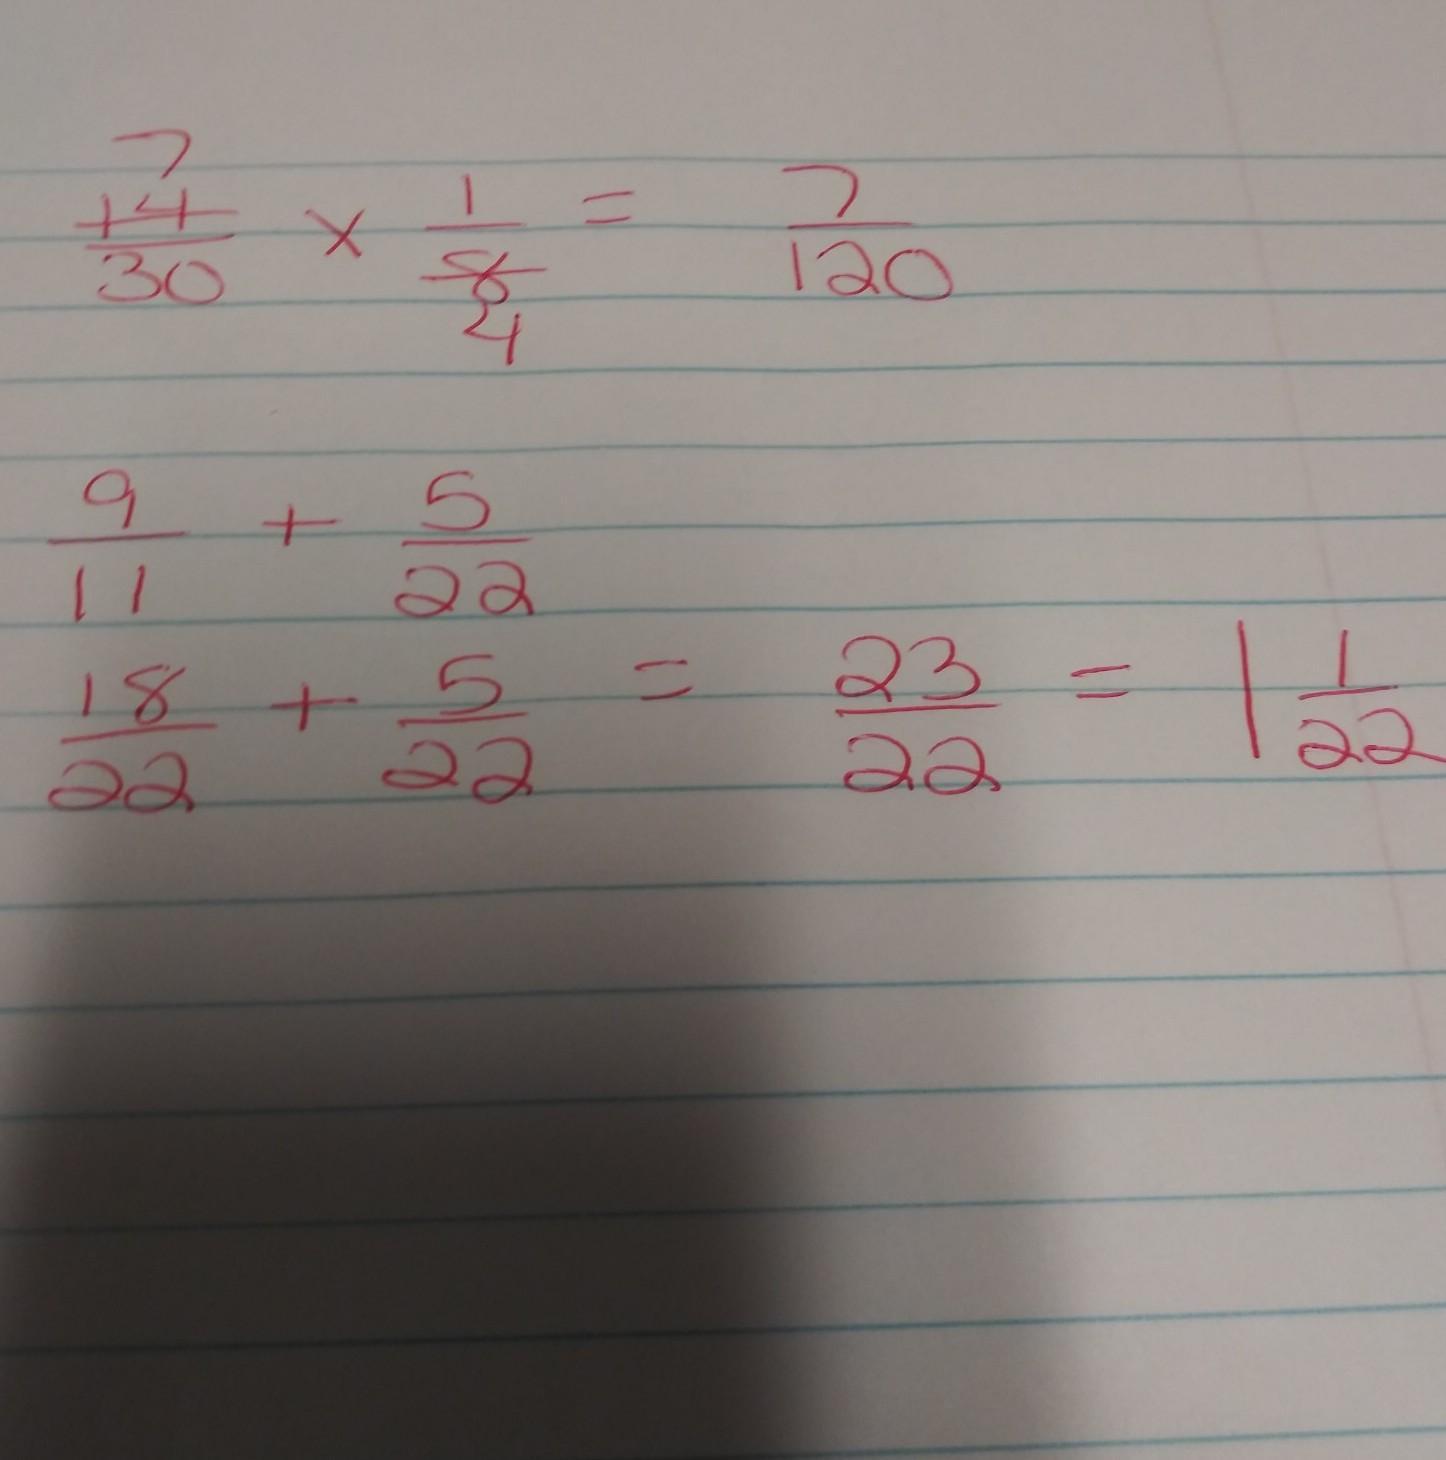 7
14/30 × 1/8 = 7/120
4
9/11 + 5/22
18/22 + 5/22 = 23/22 = 1 1/22